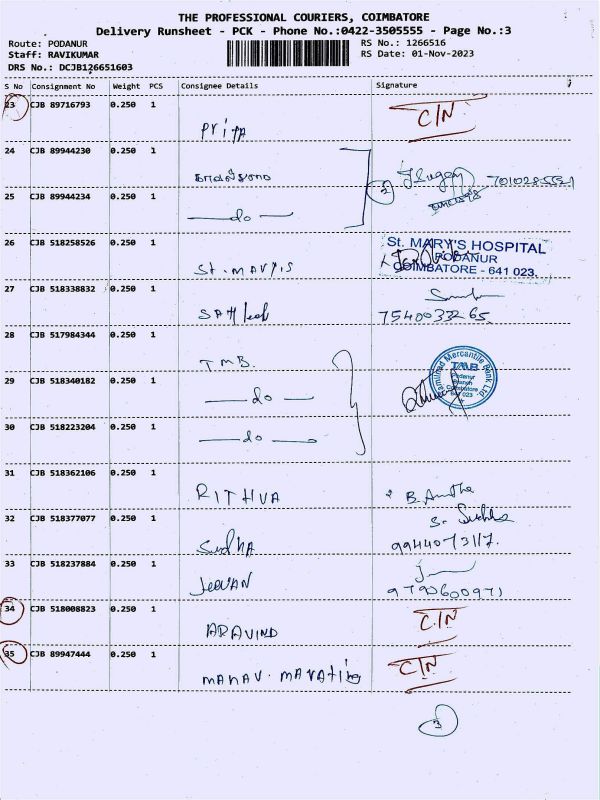 THE PROFESSIONAL COURIERS, COIMBATORE
Delivery Runsheet - PCK - Phone No.:0422-3505555 - Page No.:3
Route: PODANUR
Staff: RAVIKUMAR
DRS No.: DCJB126651603
RS No.: 1266516
RS Date: 01-Nov-2023
S No Consignment No Weight PCS Consignee Details Signature
23 CJB 89716793 0.250 1 PriyA C/N
24 CJB 89944230 0.250 1
7010285521
25 CJB 89944234 0.250 1 — do — 2
26 CJB 518258526 0.250 1 St. MARY'S
St. MARY'S HOSPITAL
PODANUR
COIMBATORE - 641 023.
27 CJB 518338832 0.250 1 SAtHeesh 7540033265
28 CJB 517984344 0.250 1 TMB.
29 CJB 518340182 0.250 1 — do —
Tamilnad Mercantile Bank Ltd
TMB
Podanur
Branch
Coimbatore
641 023
30 CJB 518223204 0.250 1 — do —
31 CJB 518362106 0.250 1 RITHVA B. Anitha
32 CJB 518377077 0.250 1 SudHA S. Sudha
9944073117.
33 CJB 518237884 0.250 1 JeeVAN
9790600971
34 CJB 518008823 0.250 1 ARAVIND C/N
35 CJB 89947444 0.250 1 MANAV. C/N
3